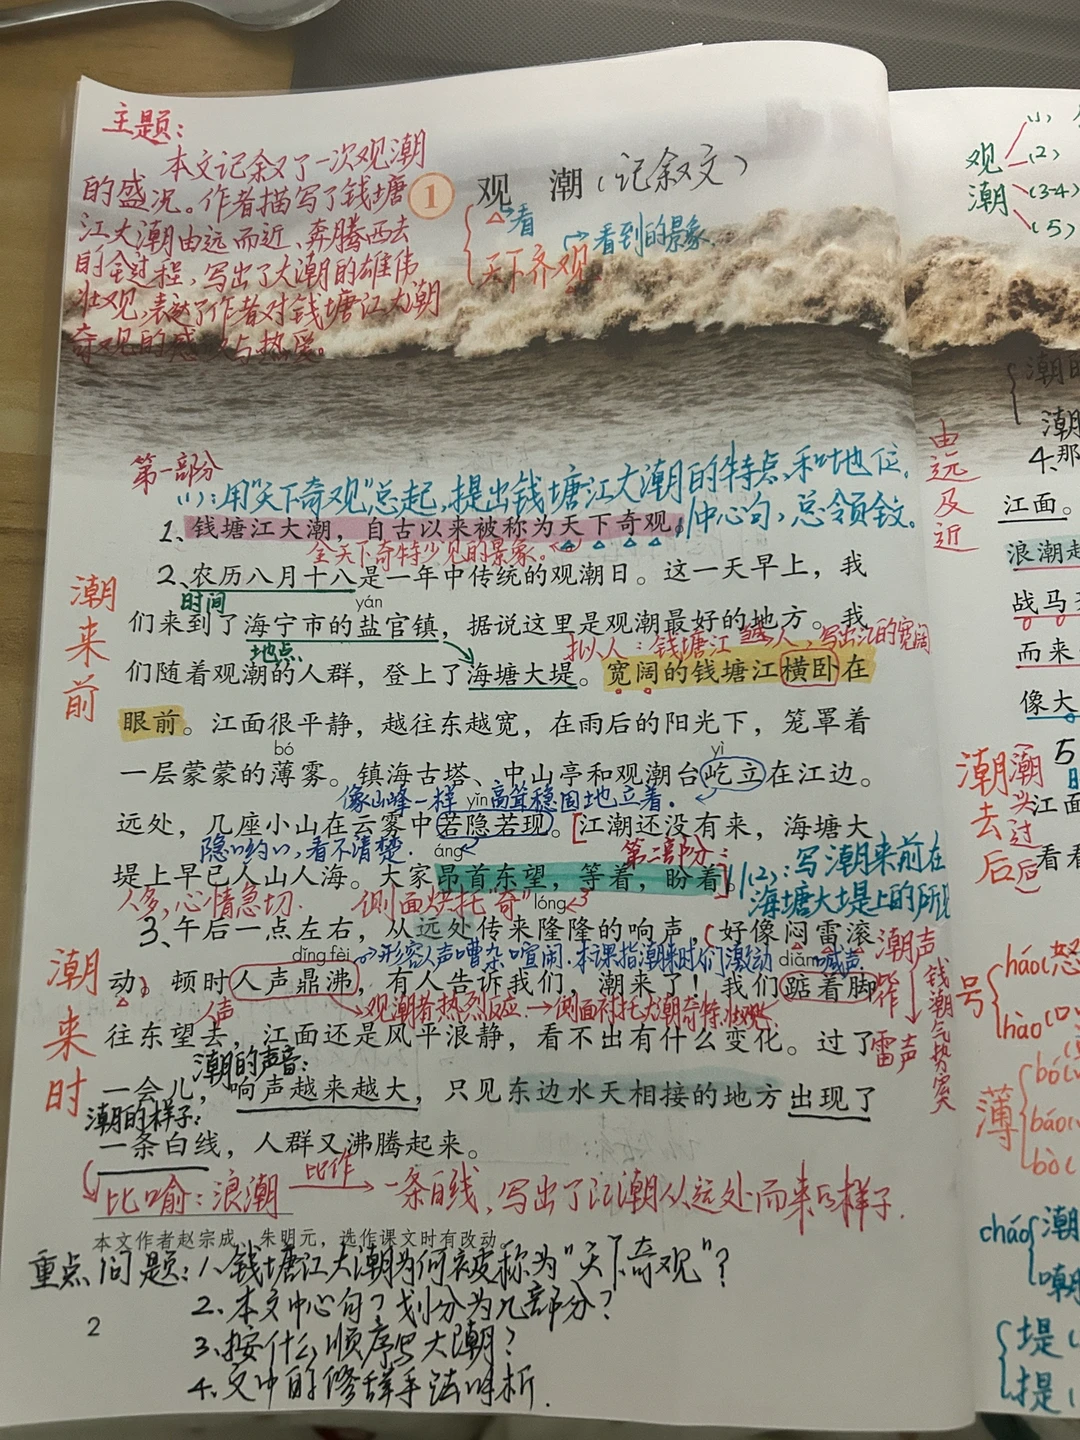 主题：
本文记叙了一次观潮
的盛况。作者描写了钱塘
江大潮由远而近、奔腾西去
的全过程，写出了大潮的雄伟
壮观，表达了作者对钱塘江大潮
奇观的感 与热爱。
1 观潮（记叙文）
看
天下奇观 看到的景象
第一部分
(1)：用"天下奇观"总起，提出钱塘江大潮的特点和地位。
中心句，总领全文。
1、钱塘江大潮，自古以来被称为天下奇观。
全天下奇特少见的景象。
2、农历八月十八是一年中传统的观潮日。这一天早上，我
时间
yán
们来到了海宁市的盐官镇，据说这里是观潮最好的地方。我
地点
拟人：钱塘江 人，写出江的宽阔
们随着观潮的人群，登上了海塘大堤。宽阔的钱塘江横卧在
眼前。江面很平静，越往东越宽，在雨后的阳光下，笼罩着
bó yì
一层蒙蒙的薄雾。镇海古塔、中山亭和观潮台屹立在江边。
像山峰一样高耸稳固地立着。
yǐn
远处，几座小山在云雾中若隐若现。[江潮还没有来，海塘大
隐隐约约，看不清楚。
áng
第二部分：
堤上早已人山人海。大家昂首东望，等着，盼着。]
(2)：写潮来前在
海塘大堤上的所
人多，心情急切。 侧面烘托"奇"
lóng
3、午后一点左右，从远处传来隆隆的响声，好像闷雷滚
dǐng fèi
形容人声嘈杂喧闹.本课指潮来时人们激动 喊声
diǎn
动。顿时人声鼎沸，有人告诉我们，潮来了！我们踮着脚
人声 观潮者热烈反应→侧面衬托大潮奇特壮观
往东望去，江面还是风平浪静，看不出有什么变化。过了
潮的声音：
一会儿，响声越来越大，只见东边水天相接的地方出现了
潮的样子：
一条白线，人群又沸腾起来。
比喻：浪潮 比作 一条白线，写出了江潮从远处而来的样子.
本文作者赵宗成、朱明元，选作课文时有改动。
重点问题：1、钱塘江大潮为何被称为"天下奇观"？
2、本文中心句？划分为几部分？
3、按什么顺序写大潮？
4、文中的修辞手法赏析.
2
潮来前
潮来时
潮声
作
雷声
钱潮气势
观潮
(1)
(2)
(3-4)
(5)
由远及近
潮的
潮
4、那
江面。
浪潮越
战马
而来
像大
潮去后
潮头过后
5
江面
看看
号
háo(怒
hào(
薄
bó(
báo(
bò(
cháo
潮
嘲
堤(
提(